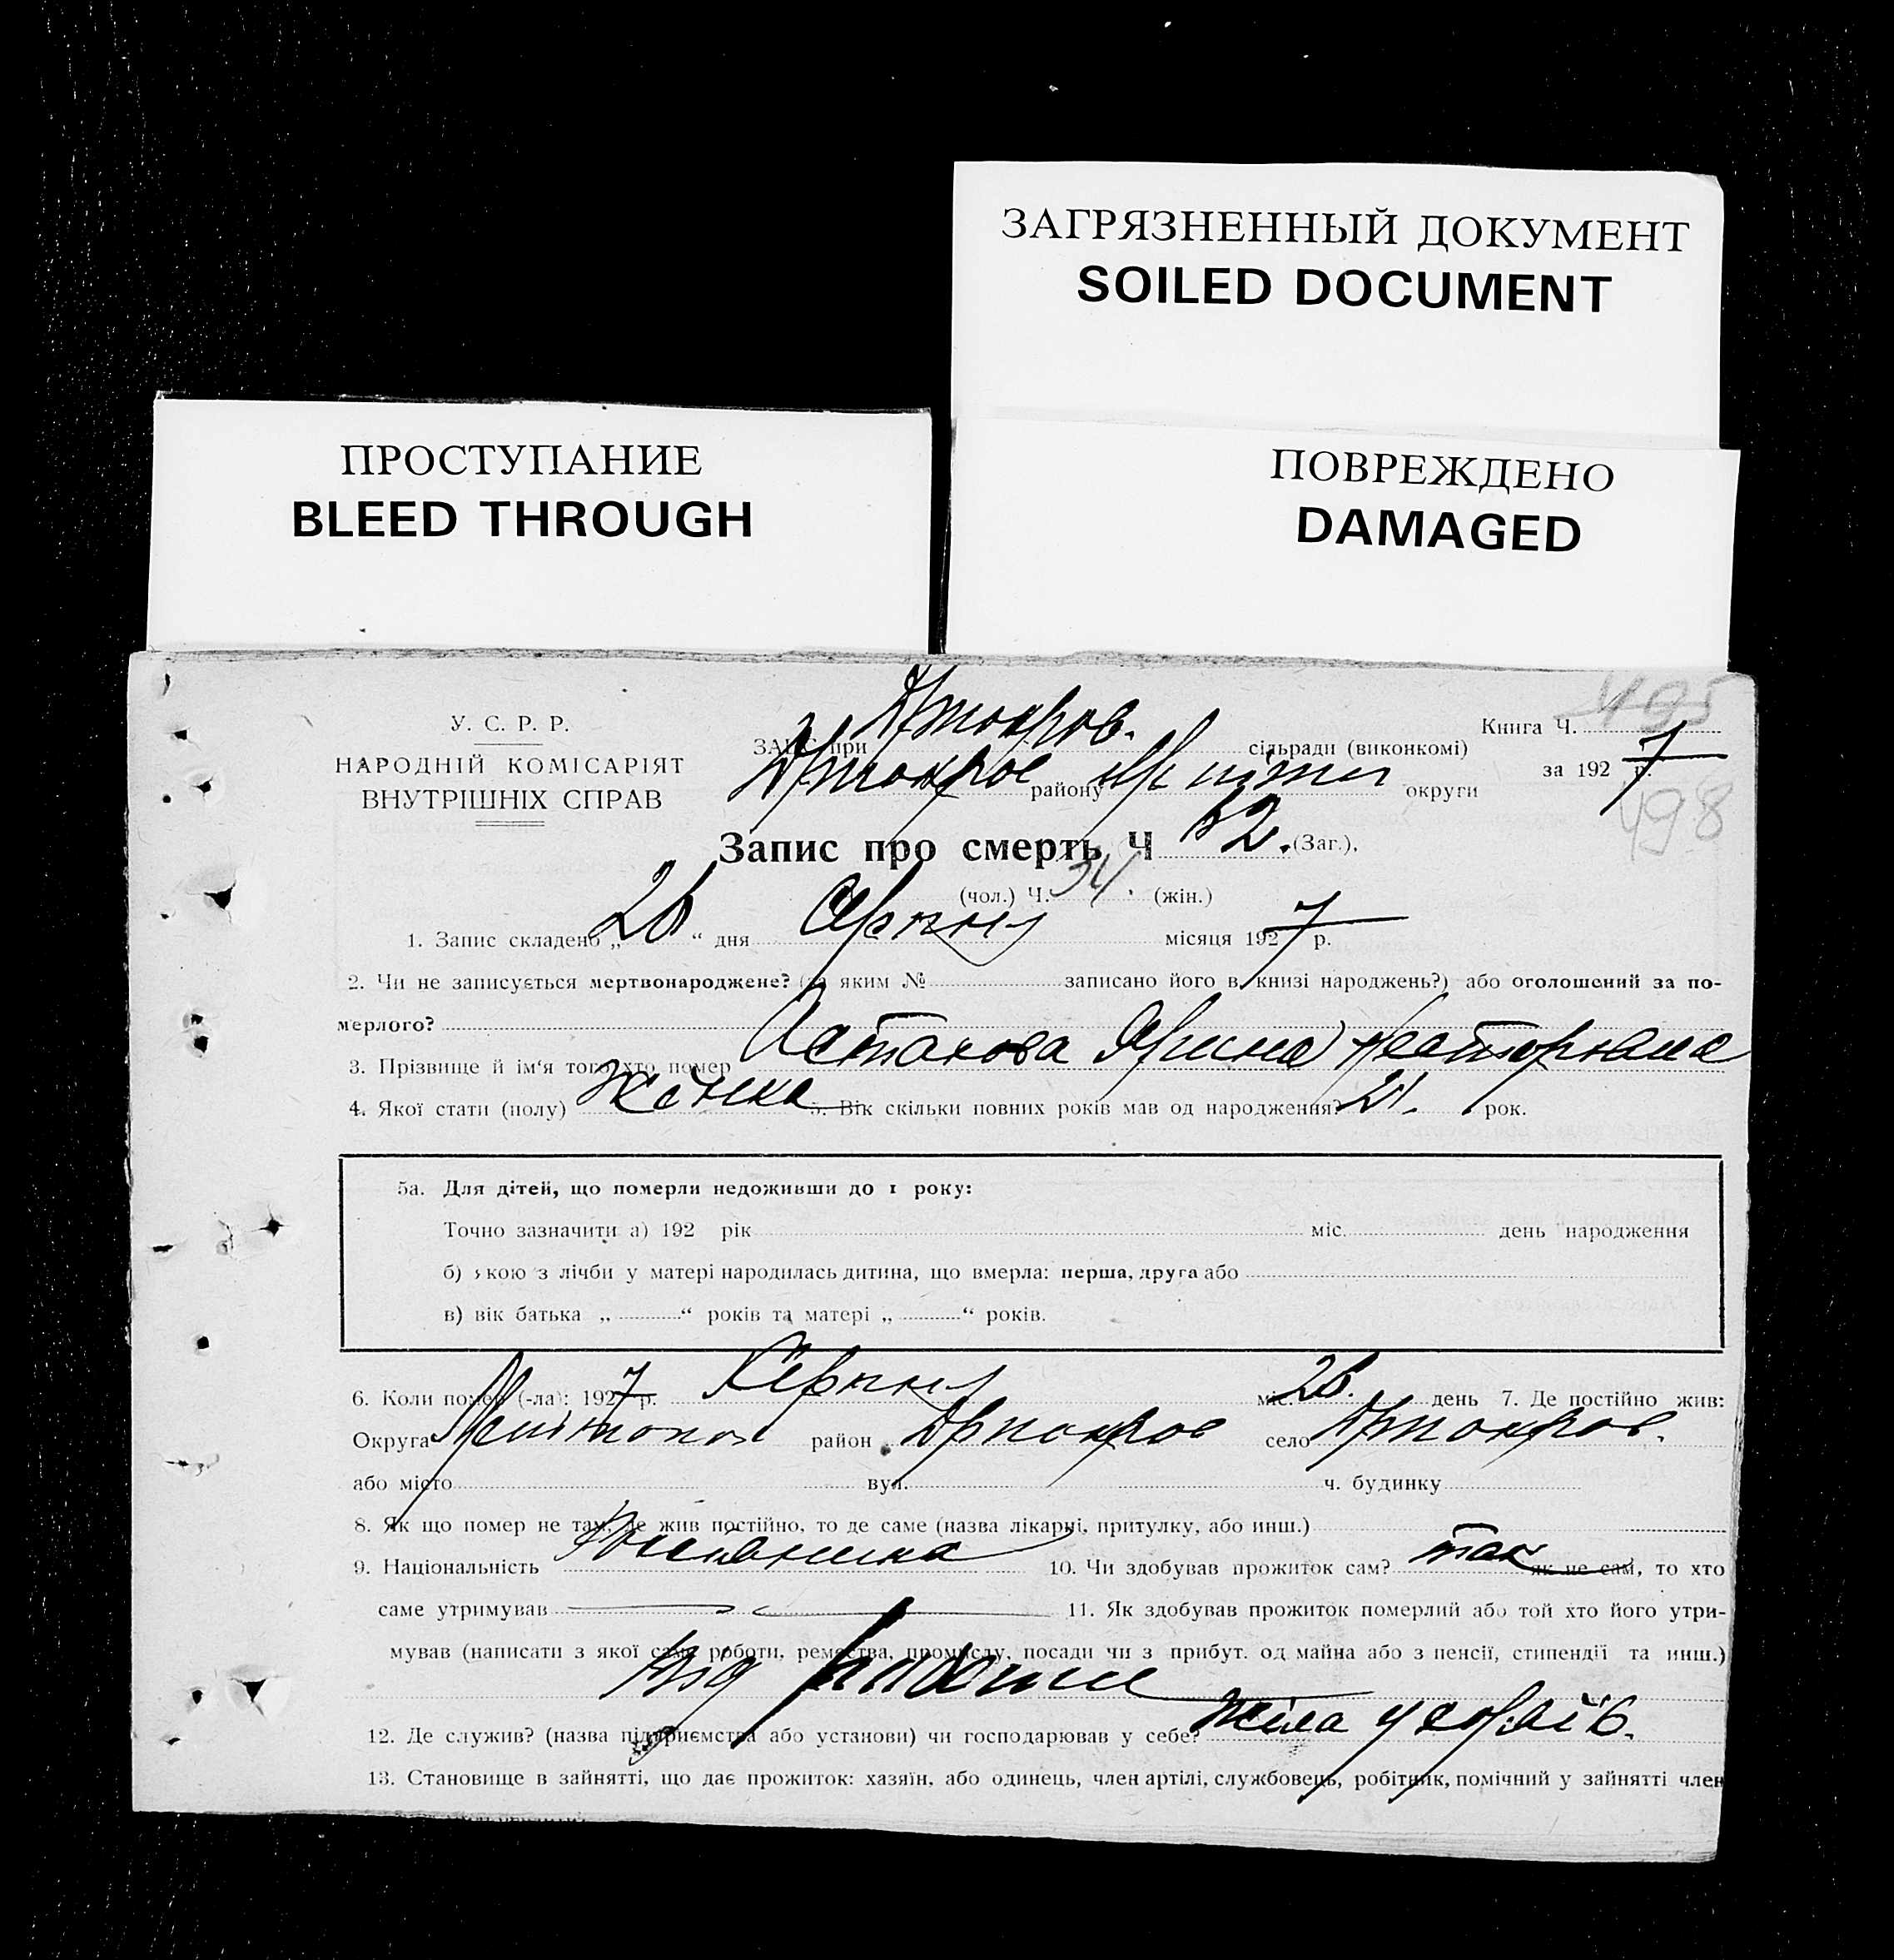 ЗАГРЯЗНЕННЫЙ ДОКУМЕНТ
SOILED DOCUMENT
ПРОСТУПАНИЕ
BLEED THROUGH
ПОВРЕЖДЕНО
DAMAGED
У. С. Р. Р.
НАРОДНІЙ КОМІСАРІЯТ
ВНУТРІШНІХ СПРАВ
Книга Ч. 495
ЗАГС при сільради (виконкомі)
за 1927 р.
району округи
498
Запис про смерть Ч 52. (Заг.),
(чол.) Ч. 34. (жін.)
1. Запис складено „26“ дня Серпня місяця 1927 р.
2. Чи не записується мертвонароджене? (за яким № записано його в книзі народжень?) або оголошений за по-
мерлого?
3. Прізвище й ім'я того, хто помер Астахова Ярина Несторовна
4. Якої стати (полу) Жінка 5. Вік скільки повних років мав од народження? 21. рок.
5а. Для дітей, що померли недоживши до 1 року:
Точно зазначити а) 192 рік міс. день народження
б) якою з лічби у матері народилась дитина, що вмерла: перша, друга або
в) вік батька „ “ років та матері „ “ років.
6. Коли помер (-ла): 1927 р. Серпня міс. 26. день 7. Де постійно жив:
Округа район село
або місто вул. ч. будинку
8. Як що помер не там, де жив постійно, то де саме (назва лікарні, притулку, або инш.)
9. Національність 10. Чи здобував прожиток сам? так як не сам, то хто
саме утримував 11. Як здобував прожиток померлий або той хто його утри-
мував (написати з якої саме роботи, ремества, промислу, посади чи з прибут. од майна або з пенсії, стипендії та инш.)
12. Де служив? (назва підприємства або установи) чи господарював у себе?
13. Становище в зайнятті, що дає прожиток: хазяїн, або одинець, член артілі, службовець, робітник, помічний у зайнятті член